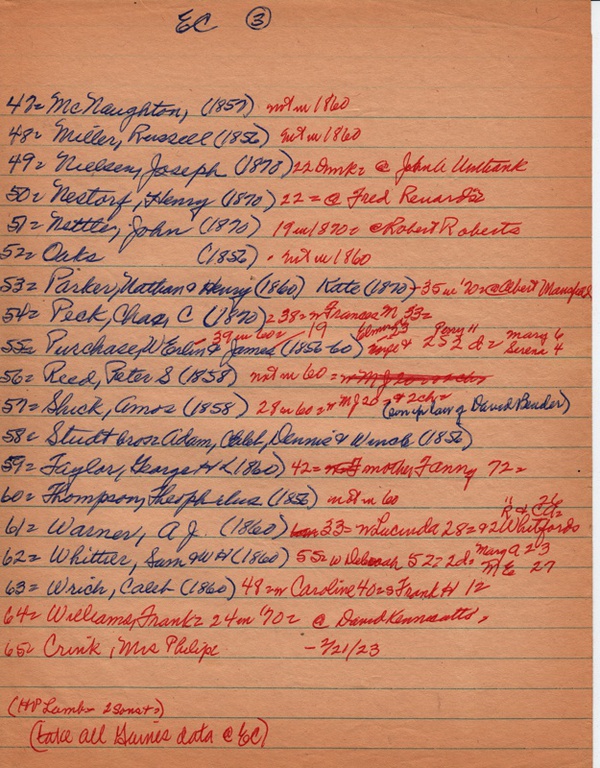 EC ③
47= McNaughton, (1857) not in 1860
48= Miller, Russell (1856) not in 1860
49= Nielsen, Joseph (1870) 22 Dmk= @ John A Unthank
50= Nestorf, Henry (1870) 22 = @ Fred
51= Nettle, John (1870) 19 in 1870= @ Robert Roberts
52= Oaks (1856) - not in 1860
53= Parker, Nathan & Henry (1860) Kate (1870) - 35 in '70= @ Albert
54= Peck, Chas, C (1870) = 38= w Frances M 33=
55= Purchase, W & James (1856-60) 39 in 60= 19 Elmira 23 wife & 252 d= Mary 6 Serena 4
56= Reed, Peter S (1858) not in 60 =
57= Shick, Amos (1858) 28 in 60= w MJ 20 & 2ch= (son in law of David Bender)
58= Studt bros= Adam, Caleb, Dennis & (1856)
59= Taylor, George H L (1860) 42= mother Fanny 72=
60= Thompson, Theophilus (1856) not in 60
61= Warner, A J. (1860) 33= w Lucinda 28= & 2 Whitfords 26
62= Whittier, Sam & W H (1860) 55= w Deborah 52= 2d= Mary A 23 M E 27
63= Wrich, Caleb (1860) 48= w Caroline 40= s Frank H 12
64= Williams, Frank= 24 in '70 = @ David
65= Crink, Mrs Philipe - 2/21/23
(HP Lamb= 2 sons+=)
(take all Gaines data @ EC)